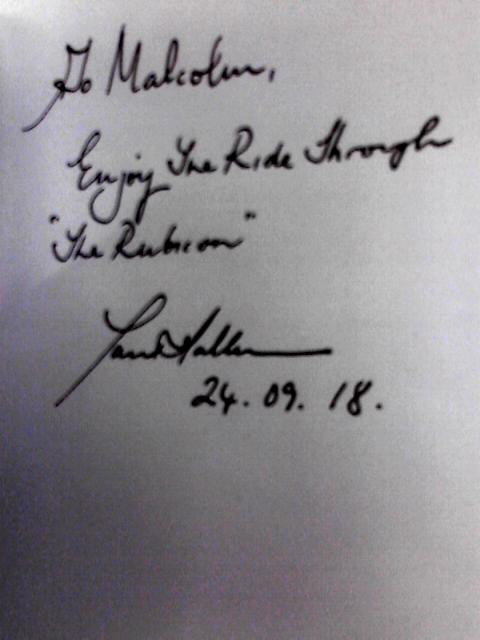 To Malcolm,
Enjoy The Ride Through
"The Rubicon"
24.09.18.